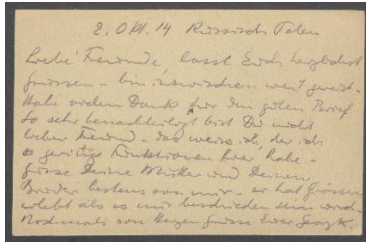 2. Okt. 14 Russisch Polen
Liebe Freunde lasst Euch herzlichst
grüssen - bin inzwischen weit gereist -
Habe vielen Dank für den guten Brief
So sehr benachteiligt bist Du nicht
lieber Freund - das weiss ich, der ich
so geistige Funktionen hier habe -
Grüsse Deine Mutter und Deinen
Bruder bestens von mir - er hat Grösseres
erlebt als es mir beschieden sein wird -
Nochmals von Herzen Grüsse Euer